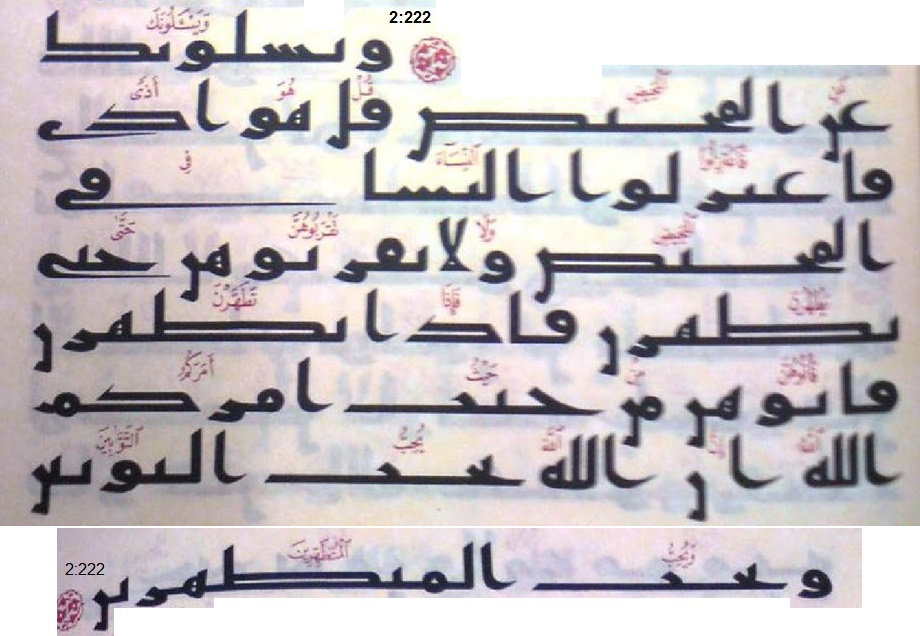 2:222
وَيَسْـَٔلُونَكَ
ويسلونك
عَنِ ٱلْمَحِيضِ قُلْ هُوَ أَذًى
عن المحيض قل هو اذى
فَٱعْتَزِلُوا۟ ٱلنِّسَآءَ فِى
فاعتزلوا النسا في
ٱلْمَحِيضِ وَلَا تَقْرَبُوهُنَّ حَتَّىٰ
المحيض ولا تقربوهن حتى
يَطْهُرْنَ فَإِذَا تَطَهَّرْنَ
يطهرن فاذا تطهرن
فَأْتُوهُنَّ مِنْ حَيْثُ أَمَرَكُمُ
فاتوهن من حيث امركم
ٱللَّهُ إِنَّ ٱللَّهَ يُحِبُّ ٱلتَّوَّٰبِينَ
الله ان الله يحب التوبين
وَيُحِبُّ ٱلْمُتَطَهِّرِينَ
ويحب المتطهرين
2:222